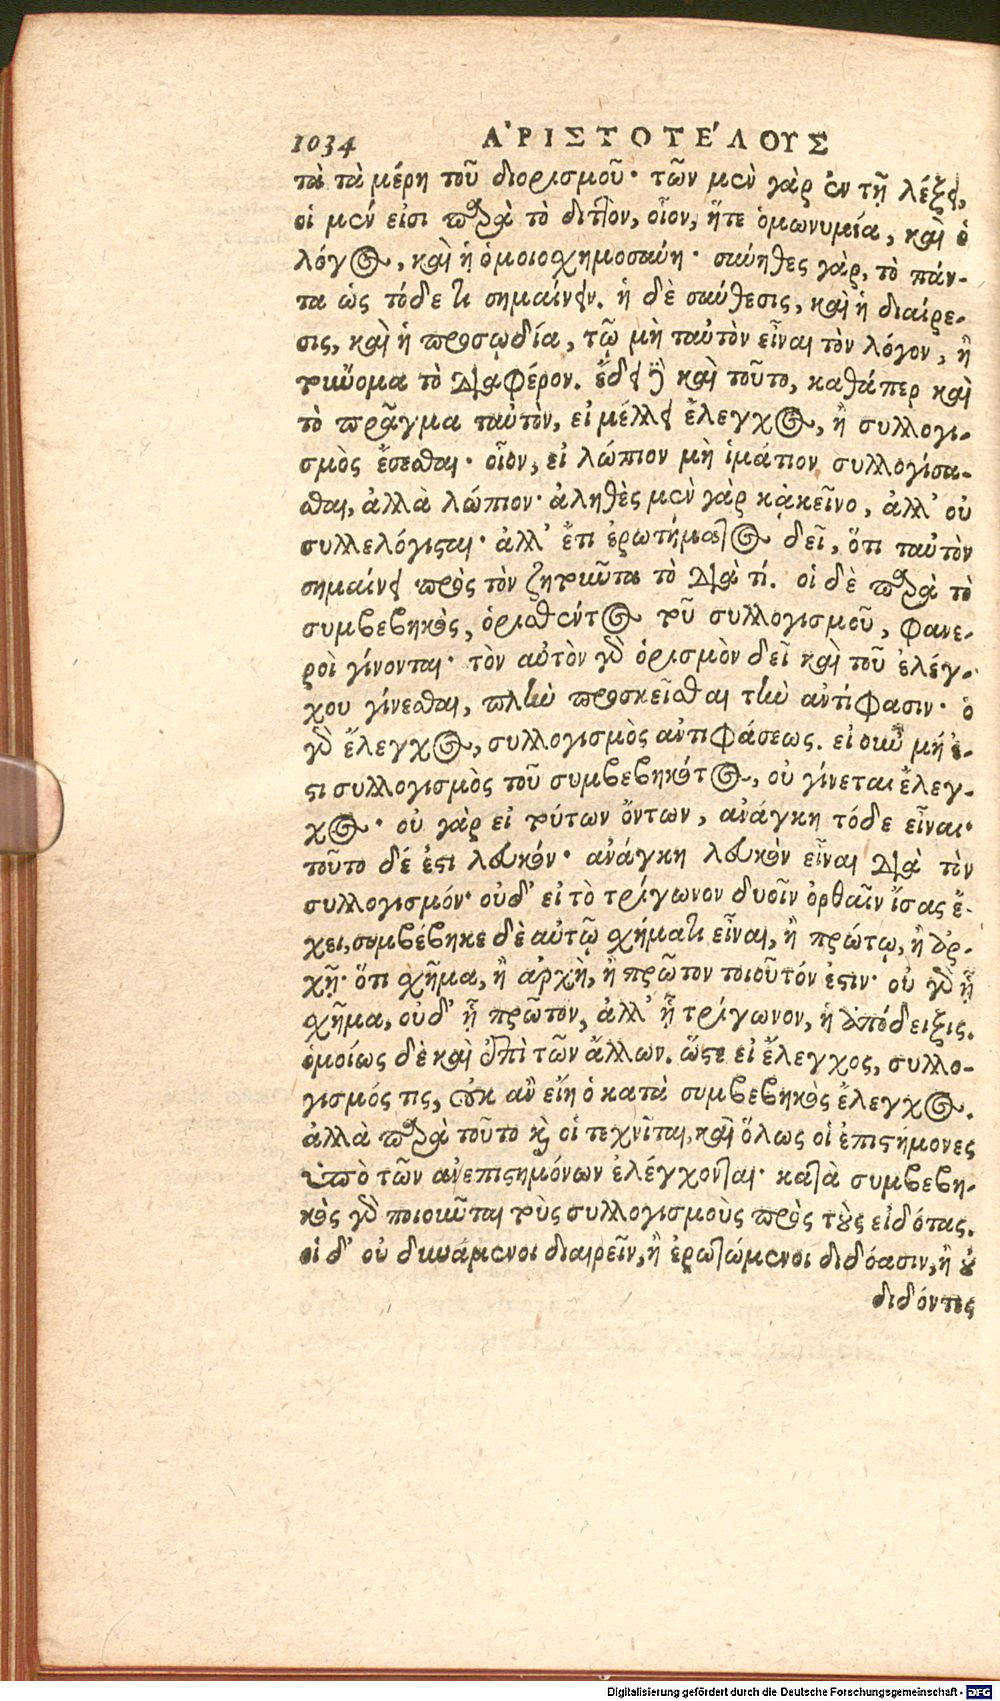 1034 ἈΡΙΣΤΟΤΕ΄ΛΟΥΣ
τὰ τὰ μέρη τοῦ διορισμοῦ· τῶν μὲν γὰρ ἐν τῇ λέξει,
οἱ μέν εἰσι παρὰ τὸ διττὸν, οἷον, ἥτε ὁμωνυμία, καὶ ὁ
λόγος, καὶ ἡ ὁμοιοσχημοσύνη· σύνηθες γὰρ, τὸ πάν-
τα ὡς τόδε τι σημαίνειν. ἡ δὲ σύνθεσις, καὶ ἡ διαίρε-
σις, καὶ ἡ προσῳδία, τῷ μὴ ταὐτὸν εἶναι τὸν λόγον, ἢ
τοὔνομα τὸ διαφέρον. ἔδει δὲ καὶ τοῦτο, καθάπερ καὶ
τὸ πρᾶγμα ταὐτὸν, εἰ μέλλει ἔλεγχος, ἢ συλλογι-
σμὸς ἔσεσθαι· οἷον, εἰ λώπιον μὴ ἱμάτιον συλλογίσα-
σθαι, ἀλλὰ λώπιον· ἀληθὲς μὲν γὰρ κᾀκεῖνο, ἀλλ' οὐ
συλλελόγισται· ἀλλ' ἔτι ἐρωτήματος δεῖ, ὅτι ταὐτὸν
σημαίνει πρὸς τὸν ζητοῦντα τὸ διὰ τί. οἱ δὲ παρὰ τὸ
συμβεβηκὸς, ὁρισθέντος τοῦ συλλογισμοῦ, φανε-
ροὶ γίνονται· τὸν αὐτὸν γὰρ ὁρισμὸν δεῖ καὶ τοῦ ἐλέγ-
χου γίνεσθαι, πλὴν προσκεῖσθαι τὴν ἀντίφασιν· ὁ
γὰρ ἔλεγχος, συλλογισμὸς ἀντιφάσεως. εἰ οὖν μή ἐ-
στι συλλογισμὸς τοῦ συμβεβηκότος, οὐ γίνεται ἔλεγ-
χος· οὐ γὰρ εἰ τούτων ὄντων, ἀνάγκη τόδε εἶναι·
τοῦτο δέ ἐστι λευκόν· ἀνάγκη λευκὸν εἶναι διὰ τὸν
συλλογισμόν· οὐδ' εἰ τὸ τρίγωνον δυοῖν ὀρθαῖν ἴσας ἔ-
χει, συμβέβηκε δὲ αὐτῷ σχήματι εἶναι, ἢ πρώτῳ, ἢ ἀρ-
χῇ· ὅτι σχῆμα, ἢ ἀρχὴ, ἢ πρῶτον τοιοῦτόν ἐστιν· οὐ γὰρ ᾗ
σχῆμα, οὐδ' ᾗ πρῶτον, ἀλλ' ᾗ τρίγωνον, ἡ ἀπόδειξις.
ὁμοίως δὲ καὶ ἐπὶ τῶν ἄλλων. ὥστε εἰ ἔλεγχος, συλλο-
γισμός τις, οὐκ ἂν εἴη ὁ κατὰ συμβεβηκὸς ἔλεγχος.
ἀλλὰ παρὰ τοῦτο καὶ οἱ τεχνῖται, καὶ ὅλως οἱ ἐπιστήμονες
ὑπὸ τῶν ἀνεπιστημόνων ἐλέγχονται· κατὰ συμβεβη-
κὸς γὰρ ποιοῦνται τοὺς συλλογισμοὺς πρὸς τοὺς εἰδότας.
οἱ δ' οὐ δυνάμενοι διαιρεῖν, ἢ ἐρωτώμενοι διδόασιν, ἢ οὐ
διδόντες
Digitalisierung gefördert durch die Deutsche Forschungsgemeinschaft - DFG